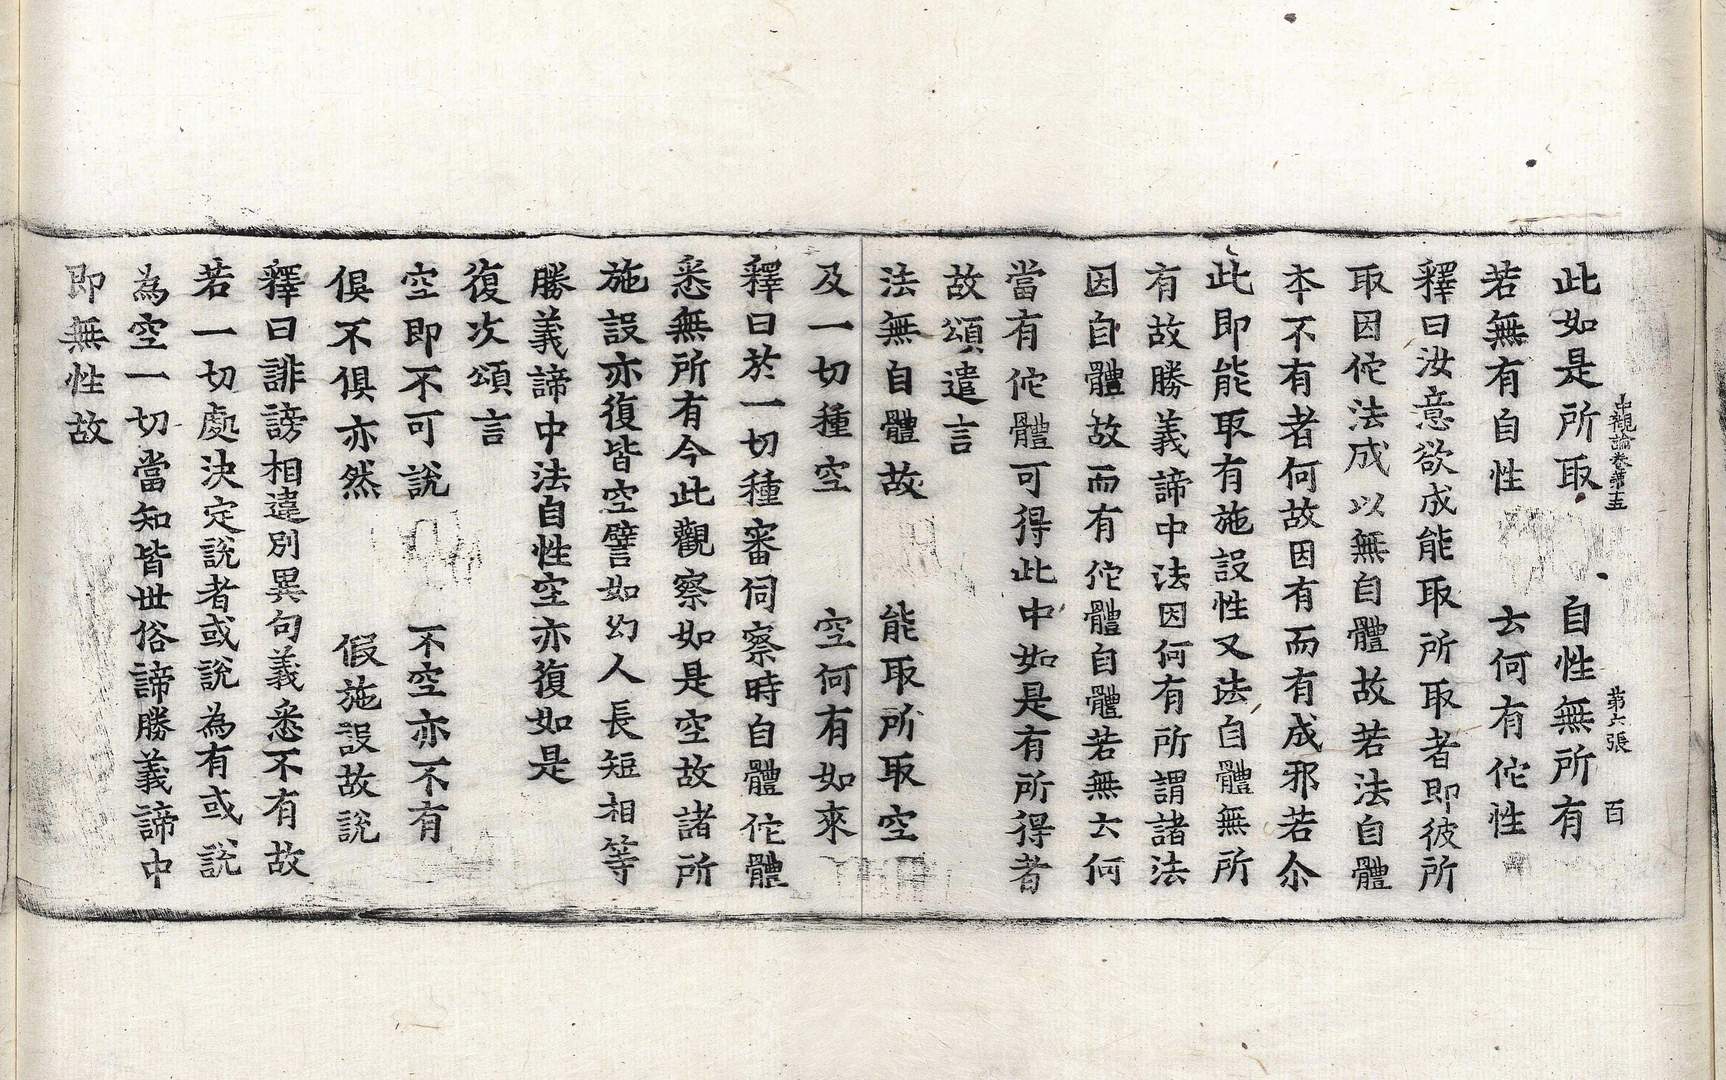 中觀論卷第十五 第六張 百
此如是所取 自性無所有
若無有自性 云何有佗性
釋曰汝意欲成能取所取者即彼所
取因佗法成以無自體故若法自體
本不有者何故因有而有成邪若尒
此即能取有施設性又法自體無所
有故勝義諦中法因何有所謂諸法
因自體故而有佗體自體若無云何
當有佗體可得此中如是有所得者
故頌遣言
法無自體故 能取所取空
及一切種空 空何有如來
釋曰於一切種審伺察時自體佗體
悉無所有今此觀察如是空故諸所
施設亦復皆空譬如幻人長短相等
勝義諦中法自性空亦復如是
復次頌言
空即不可說 不空亦不有
俱不俱亦然 假施設故說
釋曰誹謗相違別異句義悉不有故
若一切處決定說者或說為有或說
為空一切當知皆世俗諦勝義諦中
即無性故